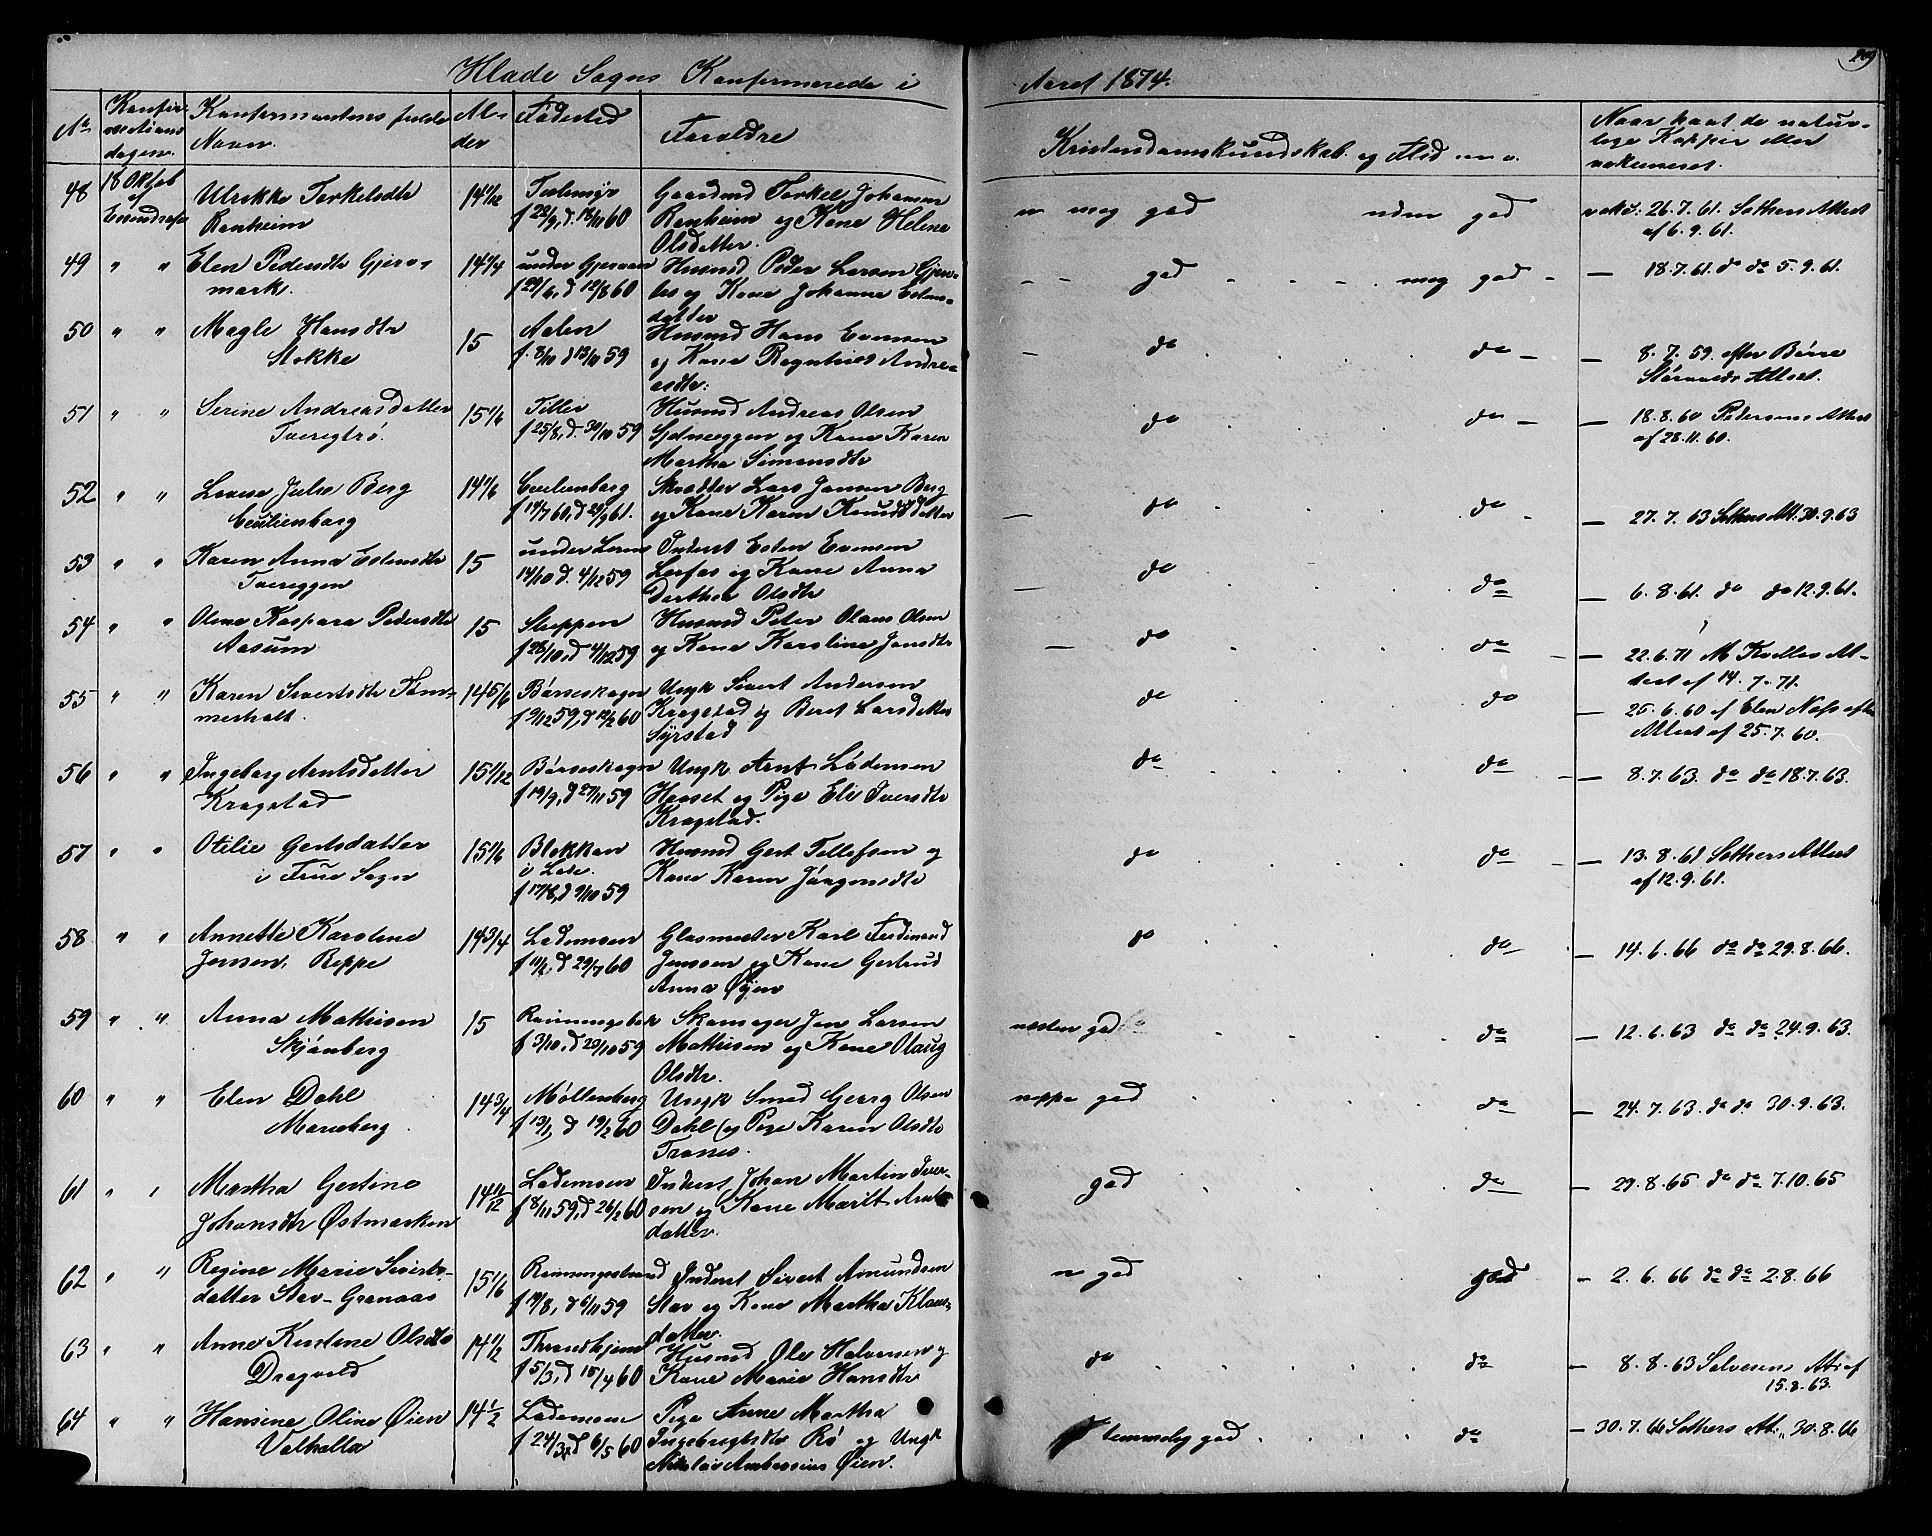 Hlade Sogns Konfirmerede i Aaret 1874.
209
No
Konfirmations dagen.
Konfirmantens fulde Navn.
Alder
Fødested
Forældre
Kristendomskundskab og Flid m. v.
Naar havt de naturlige Kopper eller vakcineret.
48 18 Oktob
Ulrikke Torkelsdtr
Ranheim
Gaardmd Torkel Johansen
Ranheim og Kone Helene
Olsdatter.
meg god
god
vakc. 26.7.61. Sothers Attest
af 6.9.61.
49 " "
Elen Pedersdtr
14 1/4
Husmd Peder Larsen
og Kone Johanna
datter
god
meg god
— 18.7.61. do do 5.9.61.
50 " "
Magle Hansdtr
Stokke
15
Aalen
f. 8/10 d 13/11 59
Husmd Hans Evensen
og Kone Ragnhild Andre-
asdtr:
do
do
— 8.7.59. efter
Attest.
51 " "
Serine Andreasdatter
15 1/6
Tiller
f 25/8, d. 30/10 59
Husmd Andreas Olsen
og Kone Karen
Martha Simonsdtr
do
do
— 18.8.60 Pedersens Attest
af 28.11.60.
52 " "
Lovise Julie Berg
Cecilienborg
14 1/6
Cecilienborg
Skrædder Lars Jensen Berg
og Kone Karen Knudsdatter
do
do
— 27.7.63 Sothers Att. 30.9.63
53 " "
Karen Anna Estensdtr
Tvereggen
15
14/10 d. 4/12 59
Inderst Esten Evensen
og Kone Anna
Dorthea Olsdtr
do
do
— 6.8.61. do do 12.9.61.
54 " "
Olena Kaspara Pedersdtr
Aasum
15
Stoppen
f 28/10, d 4/12 59
Husmd Peter Olaus Olsen
og Kone Karoline Jensdtr
do
do
— 22.6.71 M At-
test af 14.7.71.
55 " "
Karen Sivertsdtr Tøm-
merholt.
14 5/6
Børseskogn
f 9/12 59, d 12/2 60
Ungk Sivert Andersen
Krogstad og Beret Larsdatter
Syrstad
do
do
— 25.6.60 af Elen Næss efter
Attest af 25.7.60.
56 " "
Ingeborg Arntsdatter
Krogstad
15 1/12
Børseskogn
f 19/9, d 27/11 59
Ungk Arnt
og Pige Eli Iversdtr
Krogstad.
do
do
— 8.7.63. do do 18.7.63.
57 " "
Otilie Gertsdatter
i Frue Sogn
15 1/6
Blekkan
i Lade.
f 17/8, d 9/10 59
Husmd Gert Tollefsen og
Kone Karen Jørgensdtr
do
do
— 13.8.61 Sothers Attest
af 12.9.61.
58 " "
Annette Karoline
Jensen, Reppe
14 3/4
Lademoen
f 11/2, d 29/7 60
Glasmester Karl Ferdinand
Jenssen og Kone Gertrud
Anna Øyen
do
do
— 14.6.66 do do 29.8.66.
59 " "
Anna Mathisen
Skjønberg
15
f 3/10, d 20/10 59
Skomager Jon Larsen
Mathisen og Kone Olaug
Olsdtr.
næsten god
do
— 12.6.63 do do 24.9.63.
60 " "
Elen Dahl
Marieberg
14 3/4
Møllenberg
f 13/1, d 19/2 60
Ungk Smed Georg Olsen
Dahl og Pige Karen Olsdtr
neppe god
do
— 24.7.63. do do 30.9.63.
61 " "
Martha Gestine
Johansdtr Østmarken
14 11/12
Lademoen
f 8/11 59, d 26/2 60
Inderst Johan Martin Iver-
sen og Kone Marit Arnt
datter.
god
do
— 29.8.65 do do 7.10.65
62 " "
Regine Marie Siverts-
datter Stav-Granaas
15 1/6
Inderst Sivert Amundsen
Stav og Kone Martha Klaus-
datter.
god
god
— 2.6.66 do do 2.8.66
63 " "
Anne Kirstine Olsdtr
Dragvold
14 1/2
Throndhjem
f 5/3, d 15/4 60
Husmd Ole Halvorsen og
Kone Marie Hansdtr
do
do
— 8.8.63 Solvesens At. af
15.8.63.
64 " "
Hansine Oline Øien
Valhalla
14 1/2
Lademoen
f 24/3, d 6/5 60
Pige Anne Martha
Ingebrigtsdtr Rø og Ungk
Nikolai Ambrosius Øien.
temmelig god
do
— 30.7.66 Sothers At. 30.8.66